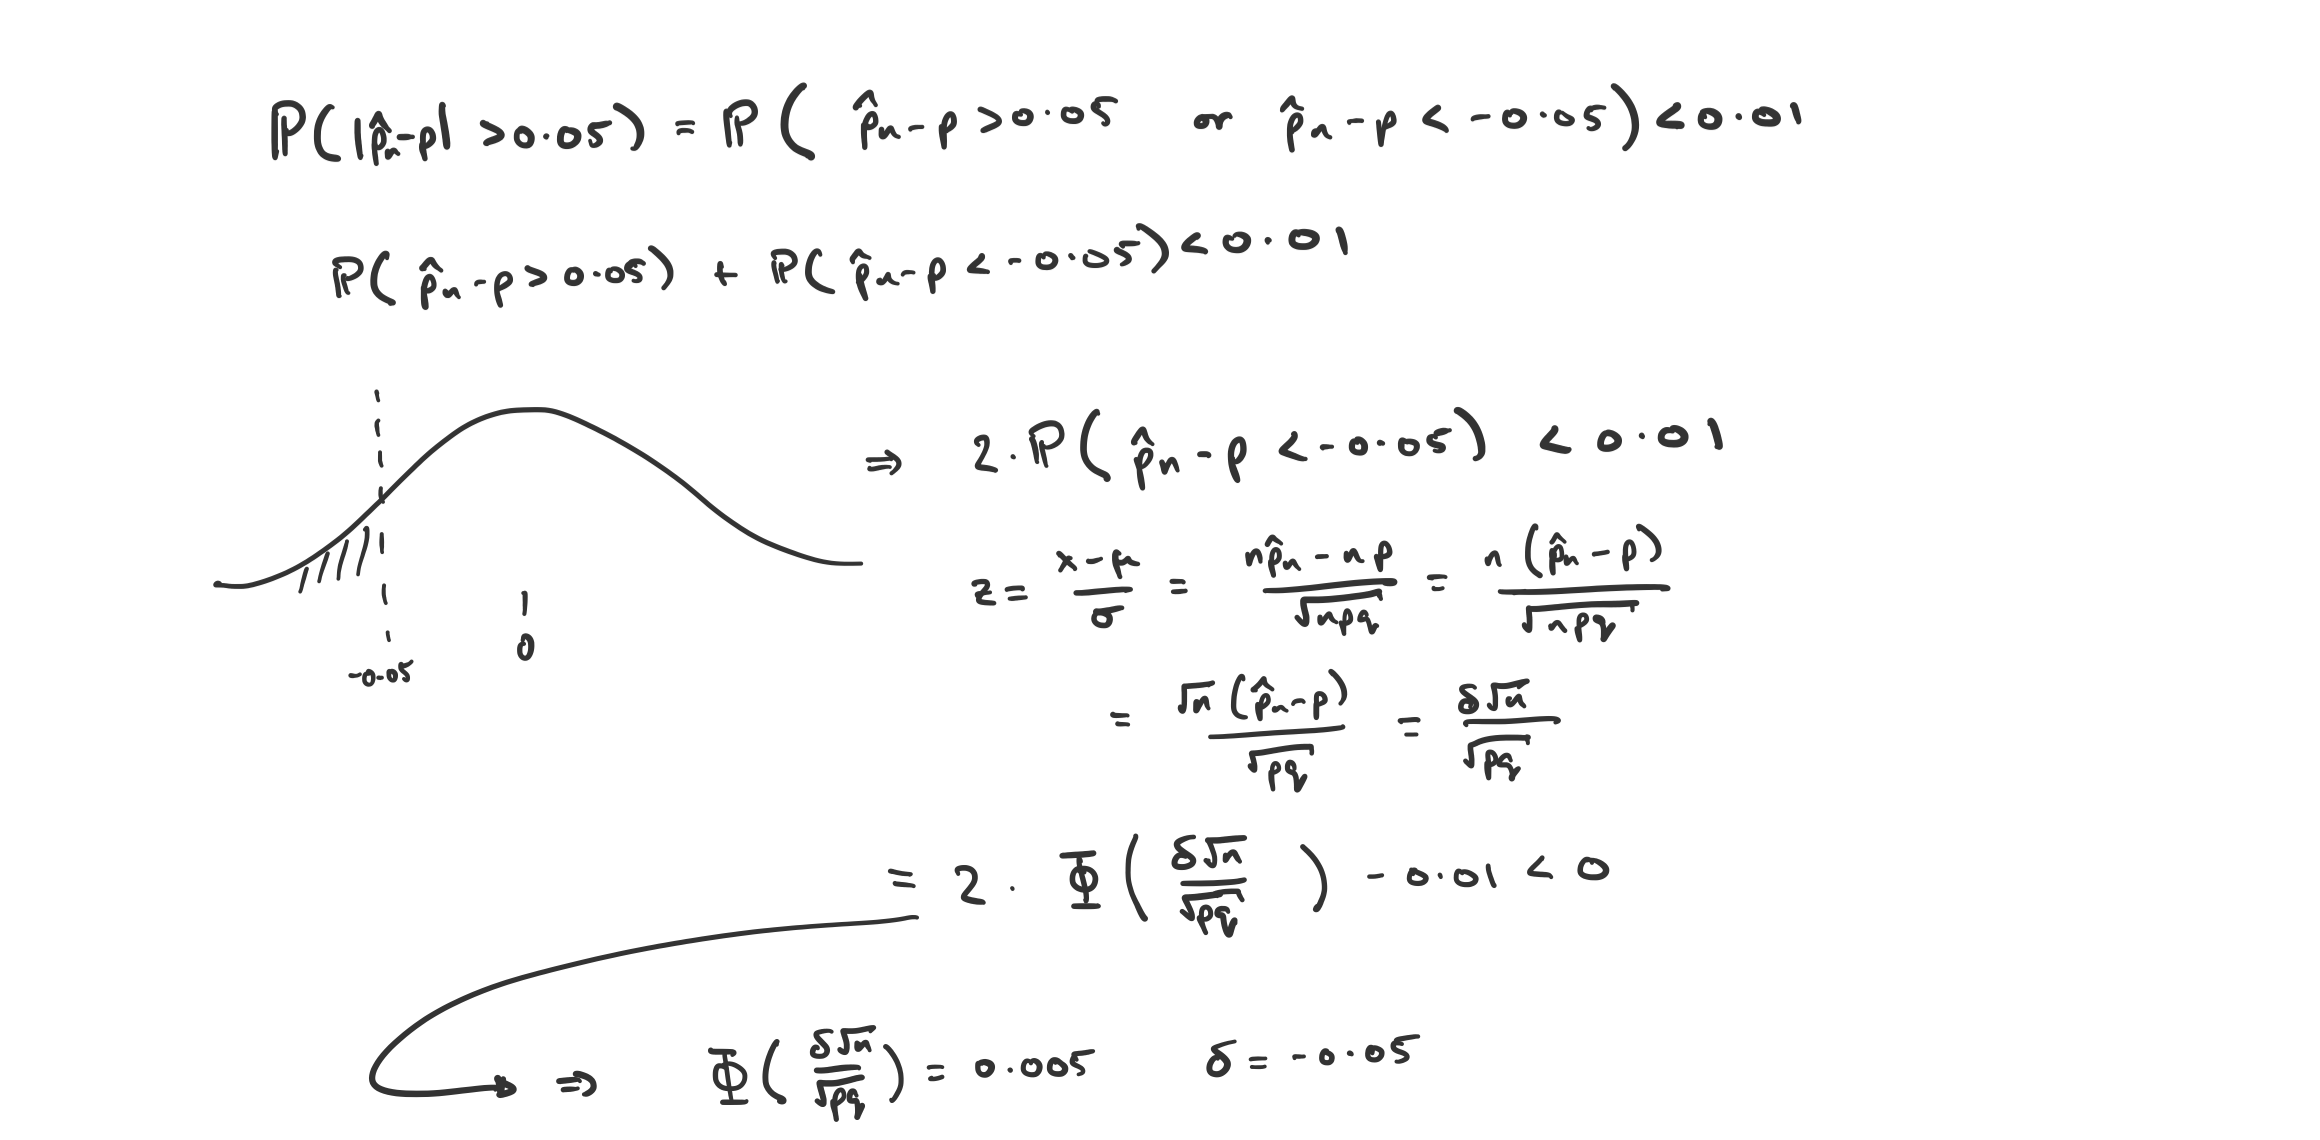 ℙ(|p̂ₙ-p| > 0.05) = ℙ( p̂ₙ-p > 0.05 or p̂ₙ-p < -0.05) < 0.01
ℙ( p̂ₙ-p > 0.05) + ℙ( p̂ₙ-p < -0.05) < 0.01
⇒ 2·ℙ( p̂ₙ-p < -0.05) < 0.01
z = (x-μ)/σ = (np̂ₙ - np)/√(npq) = n(p̂ₙ-p)/√(npq)
-0.05 0
= √n (p̂ₙ-p)/√(pq) = δ√n/√(pq)
= 2 · Φ( δ√n/√(pq) ) - 0.01 < 0
⇒ Φ( δ√n/√(pq) ) = 0.005 δ = -0.05